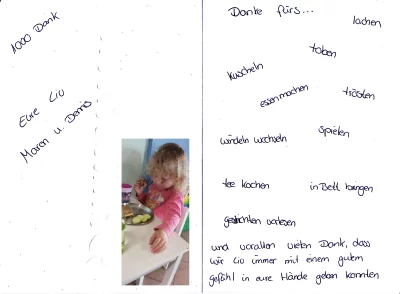 1000 Dank
Eure Liv
Maren u. Dennis
Danke fürs...
lachen
toben
kuscheln
essen machen
trösten
spielen
windeln wechseln
tee kochen
in Bett bringen
geschichten vorlesen
und vorallen vielen Dank, dass
wir Liv immer mit einem gutem
gefühl in eure Hände geben konnten